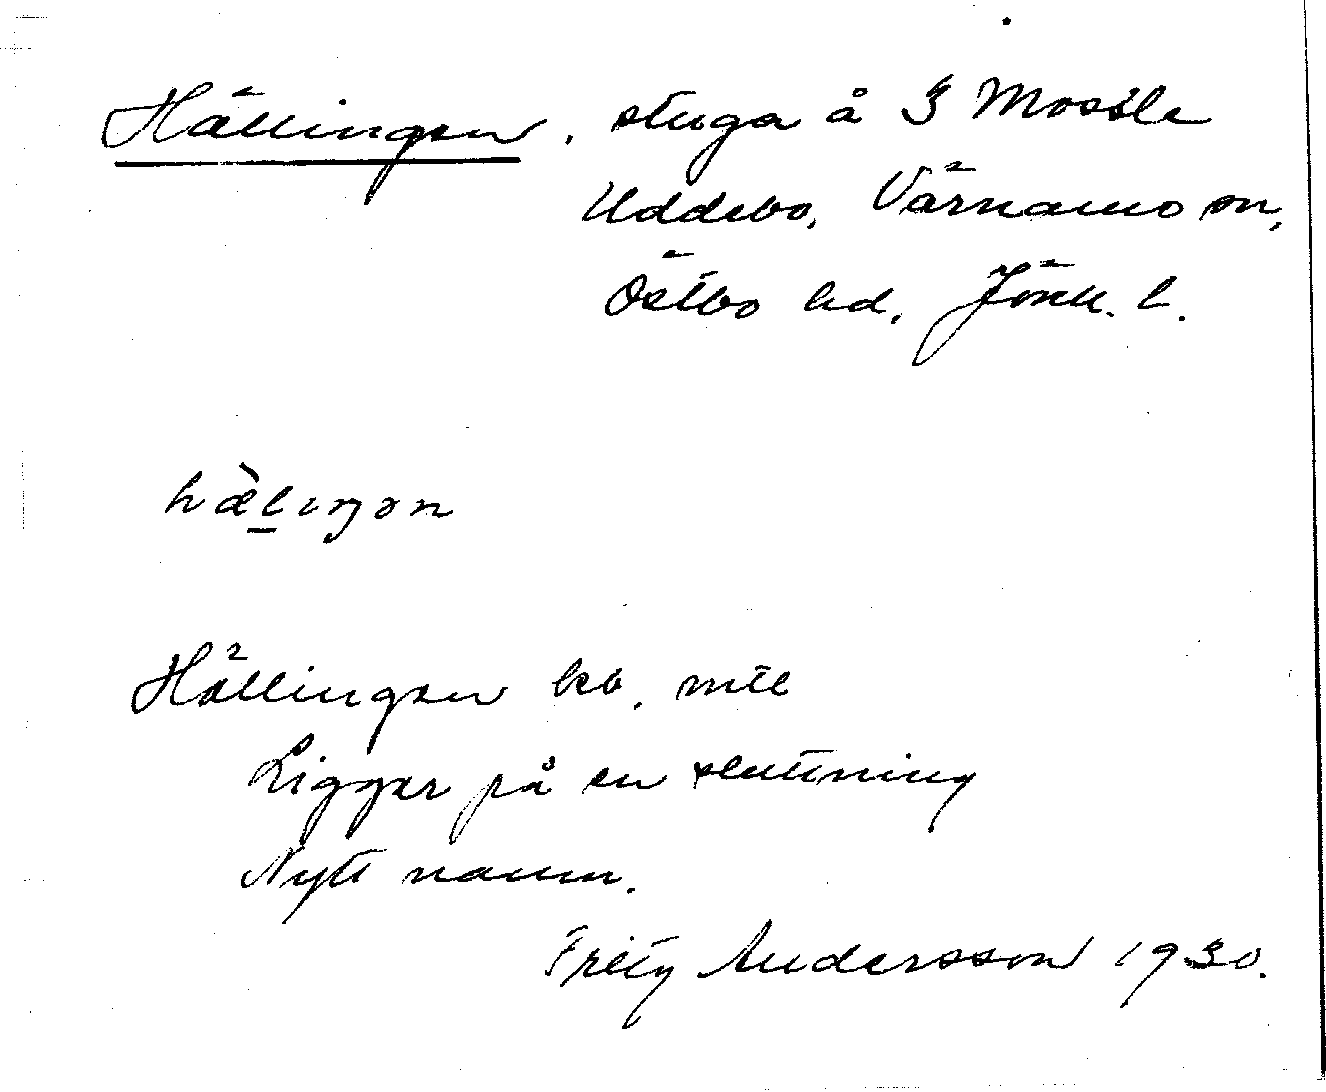 Hällingen, stuga å 3 Mossle
Uddebo, Värnamo sn,
Östbo hd, Jönk. l.
hælıŋən
Hällingen kb. mtl
Ligger på en sluttning
Nytt namn.
Fritz Andersson 1930.